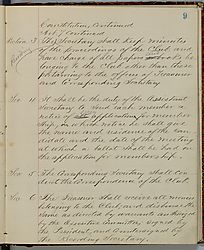 9
Constitution, Continued
Art. Continued
Section 3 The Secretary shall keep minutes
of the proceedings of the Club and
have charge of all papers books be
longing to the Club other than those
pertaining to the offices of Treasurer
and Corresponding Secretary
Sec. 4 It shall be the duty of the Assistant
Secretary to send each member a
notice of application for member
ship, in which notice he shall give
the name and residence of the can
didate and the date of the meeting
at which a ballot shall be had on
the application for membership.
Sec. 5 The Corresponding Secretary shall con
duct the Correspondence of the Club
Sec. 6 The Treasurer shall receive all moneys
belonging to the Club and disburse the
same as directed by warrants
by the Executive Committee signed by
the President, and Countersigned by
the Recording Secretary.